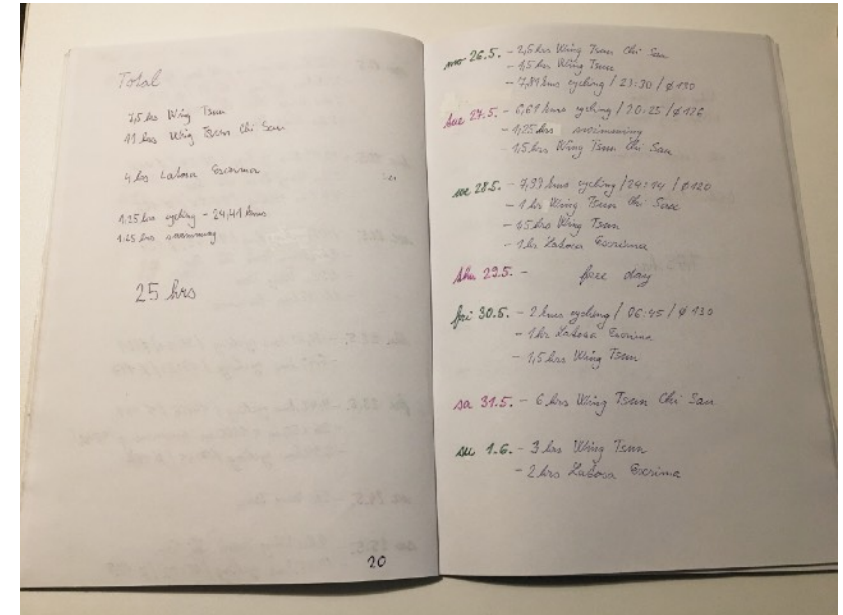 Total
7,5 hrs Wing Tsun
11 hrs Wing Tsun Chi Sau
4 hrs Latosa Escrima
1.25 hrs cycling - 24,41 kms
1.25 hrs swimming
25 hrs
20
mo 26.5. - 2,5 hrs Wing Tsun Chi Sau
- 1,5 hrs Wing Tsun
- 7,81 kms cycling / 23:30 / ø 130
tue 27.5. - 6,61 kms cycling / 20:25 / ø 126
- 1,25 hrs swimming
- 1,5 hrs Wing Tsun Chi Sau
we 28.5. - 7,99 kms cycling / 24:14 / ø 120
- 1 hr Wing Tsun Chi Sau
- 1,5 hrs Wing Tsun
- 1 hr Latosa Escrima
thu 29.5. - free day
fri 30.5. - 2 kms cycling / 06:45 / ø 130
- 1 hr Latosa Escrima
- 1,5 hrs Wing Tsun
sa 31.5. - 6 hrs Wing Tsun Chi Sau
su 1.6. - 3 hrs Wing Tsun
- 2 hrs Latosa Escrima